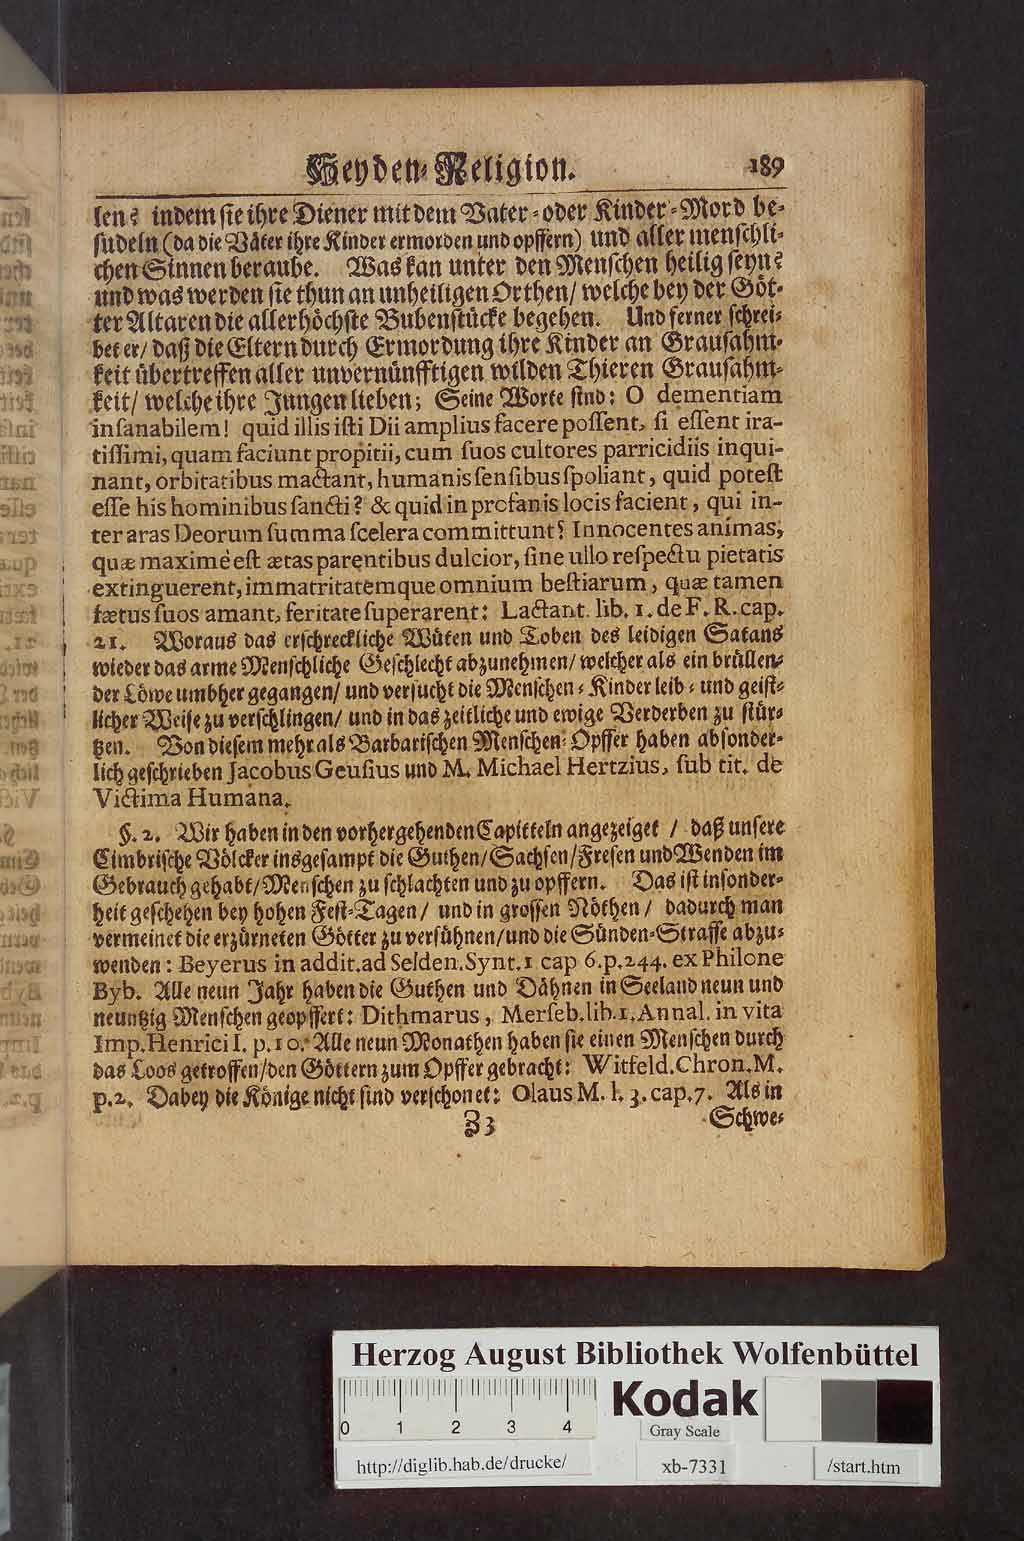 Heyden-Religion. 189
len? indem sie ihre Diener mit dem Vater-oder Kinder-Mord be-
sudeln (da die Väter ihre Kinder ermorden und opffern) und aller menschli-
chen Sinnen beraube. Was kan unter den Menschen heilig seyn?
und was werden sie thun an unheiligen Orthen/ welche bey der Göt-
ter Altaren die allerhöchste Bubenstücke begehen. Und ferner schrei-
bet er/ daß die Eltern durch Ermordung ihre Kinder an Grausahm-
keit übertreffen aller unvernünfftigen wilden Thieren Grausahm-
keit/ welche ihre Jungen lieben; Seine Worte sind: O dementiam
insanabilem! quid illis isti Dii amplius facere possent, si essent ira-
tissimi, quam faciunt propitii, cum suos cultores parricidiis inqui-
nant, orbitatibus mactant, humanis sensibus spoliant, quid potest
esse his hominibus sancti? & quid in profanis locis facient, qui in-
ter aras Deorum summa scelera committunt? Innocentes animas,
quæ maximè est ætas parentibus dulcior, sine ullo respectu pietatis
extinguerent, immatritatemque omnium bestiarum, quæ tamen
fætus suos amant, feritate superarent: Lactant. lib. 1. de F. R. cap.
21. Woraus das erschreckliche Wüten und Toben des leidigen Satans
wieder das arme Menschliche Geschlecht abzunehmen/ welcher als ein brüllen-
der Löwe umbher gegangen/ und versucht die Menschen-Kinder leib- und geist-
licher Weise zu verschlingen/ und in das zeitliche und ewige Verderben zu stür-
tzen. Von diesem mehr als Barbarischen Menschen-Opffer haben absonder-
lich geschrieben Jacobus Geusius und M. Michael Hertzius, sub tit. de
Victima Humana.
§. 2. Wir haben in den vorhergehenden Capitteln angezeiget / daß unsere
Cimbrische Völcker insgesampt die Guthen/ Sachsen/ Fresen und Wenden im
Gebrauch gehabt/ Menschen zu schlachten und zu opffern. Das ist insonder-
heit geschehen bey hohen Fest-Tagen/ und in grossen Nöthen/ dadurch man
vermeinet die erzürneten Götter zu versühnen/ und die Sünden-Straffe abzu-
wenden: Beyerus in addit. ad Selden. Synt. 1 cap 6. p. 244. ex Philone
Byb. Alle neun Jahr haben die Guthen und Dähnen in Seeland neun und
neuntzig Menschen geopffert: Dithmarus, Merseb. lib. 1. Annal. in vita
Imp. Henrici I. p. 10. Alle neun Monathen haben sie einen Menschen durch
das Loos getroffen/ den Göttern zum Opffer gebracht: Witfeld. Chron. M.
p. 2. Dabey die Könige nicht sind verschonet: Olaus M. l. 3. cap. 7. Als in
Z 3 Schwe-
Herzog August Bibliothek Wolfenbüttel
0 1 2 3 4
Kodak
Gray Scale
http://diglib.hab.de/drucke/ xb-7331 /start.htm